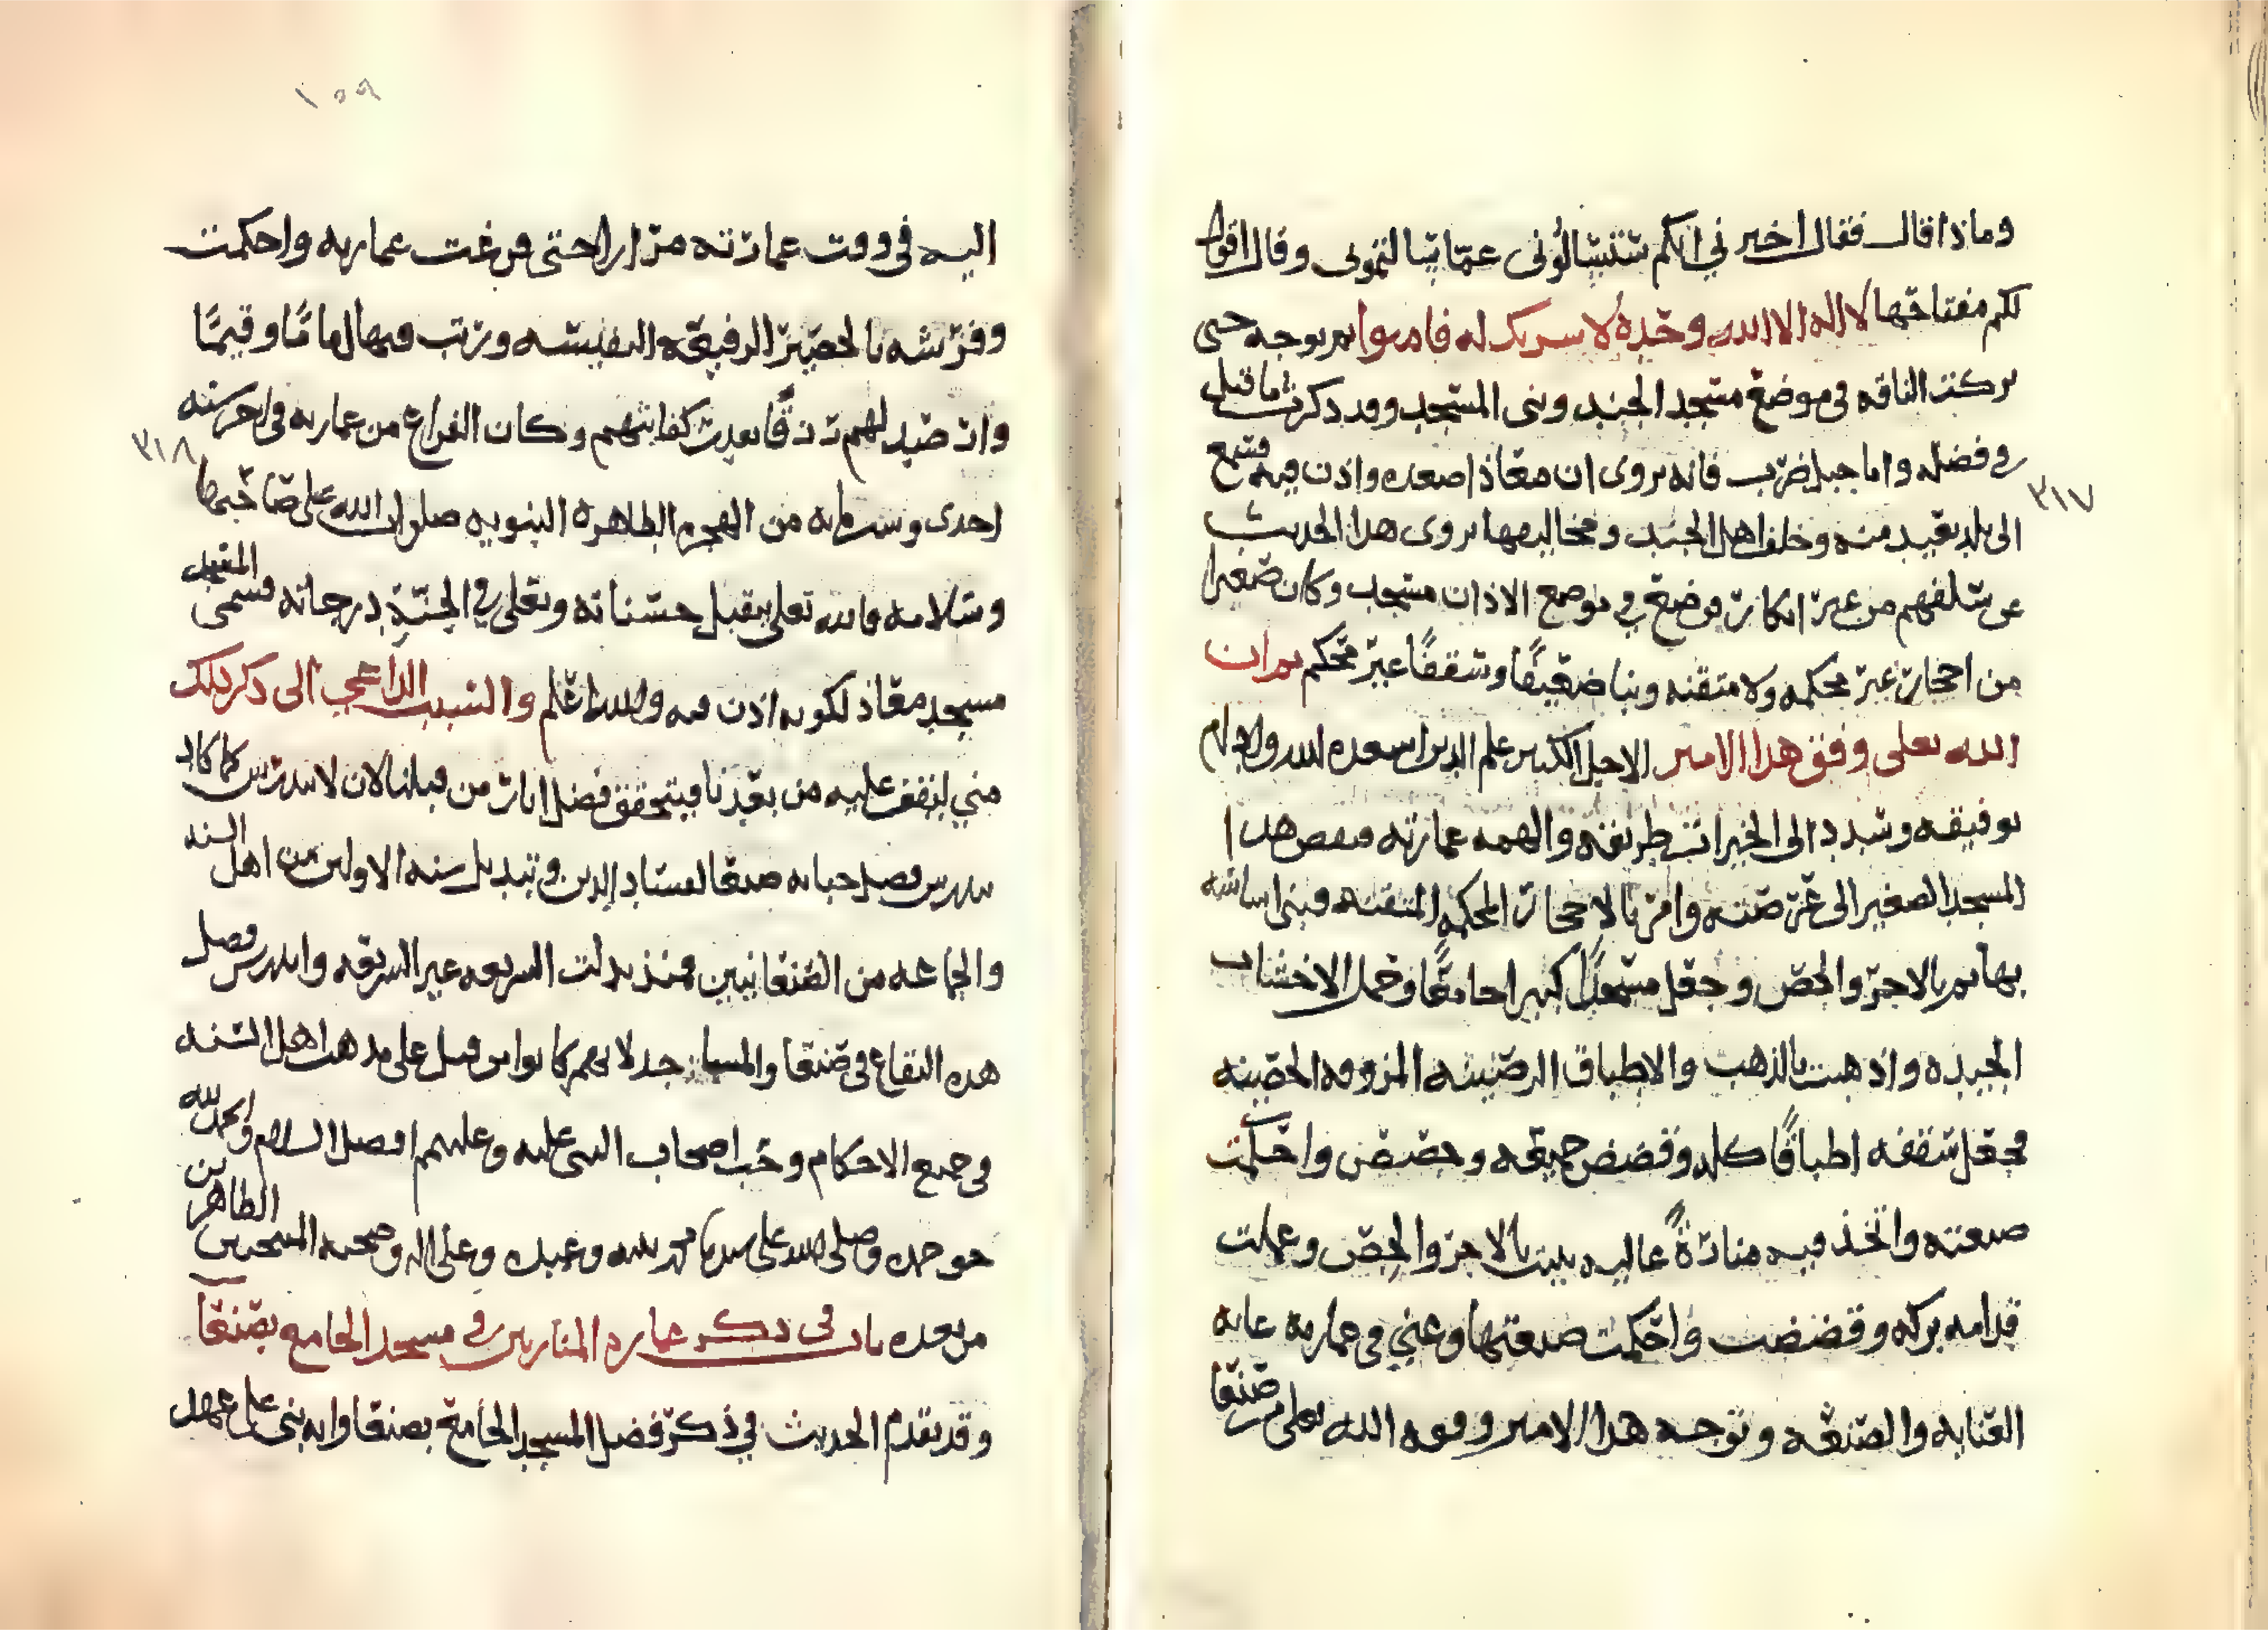 وماذا قال فقال اخبرني انكم ستسالوني عما سالتموني وقال اقول
لكم مفتاحها لا اله الا الله وحده لا سريك له فامنوا ثم توجه حتى
بركت الناقه في موضع مسجد الجند وبنى المسجد وقد ذكرت ما قيل
في فضله واما جبل ضرب فانه يروى ان معاذ اصعده واذن فيه فسمع
٣١٧
الى بلد بعيد منه وخلف اهل الجند ومخاليفها يروى هذا الحديث
عن سلفهم من غير انكار فوضع في موضع الاذان مسجد وكان صغيرا
من احجار غير محكمه ولا متقنه وبنا ضعيفا وسقفا غير محكم ثم ان
الله تعلى وفق هذا الامير الاجل الكبير علم الدين اسعده الله وادام
توفيقه وسدد الى الخيرات طريقه والهمه عمارته فنقض هذا
المسجد الصغير الى عرصته وامر بالاحجار المحكمه المتقنه فبنى اساسه
بها ثم بالاجر والجص وجعل مسجدا كبيرا جامعا وحمل الاخشاب
الجيده واذهبت بالذهب والاطباق الرصينه المزوقه الحصينه
فجعل سقفه اطباقا كله وقضض جميعه وجصص واحكمت
صنعته واتخذ فيه منارة عاليه بنيت بالاجر والجص وعملت
قدامه بركه وقضضت واحكمت صنعتها وعني في عمارته غايه
العنايه والصنعه وتوجه هذا الامير وفقه الله تعلى من صنعا
١٥٩
اليه في وقت عمارته مرارا حتى فرغت عمارته واحكمت
وفرشه بالحصير الرفيعه النفيسه ورتب فيها اماما وقيما
وارصد لهم رزقا بعدت كفايتهم وكان الفراغ من عمارته في اخر سنه
٣١٨
احدى وستمايه من الهجره الطاهره النبويه صلوات الله على صاحبها
وسلامه فالله تعلى يتقبل حسناته ويعلي في الجنة درجاته فسمى المسجد
مسجد معاذ لكونه اذن فيه والله اعلم والسبب الداعي الى ذكر ذلك
مني ليقف عليه من بعدنا فيتحقق فضل اثار من قبلنا لان لا يندرس كما كاد
يندرس فضل جبانه صنعا لفساد الدين وتبديل سنه الاولين من اهل السنه
والجماعه من الصنعانيين فمنذ بدلت الشريعه غير الشريعه واندرس فضل
هذه البقاع في صنعا والمساجد لانهم كانوا من قبل على مذهب اهل السنه
في جميع الاحكام وحب اصحاب النبي عليه وعليهم افضل السلام والحمد لله
حق حمده وصلى الله على سيدنا محمد نبيه وعبده وعلى اله وصحبه المنتجبين الطاهرين
من بعده باب في ذكر عماره المنارتين في مسجد الجامع بصنعا
وقد تقدم الحديث في ذكر فضل المسجد الجامع بصنعا وانه بني على عهد